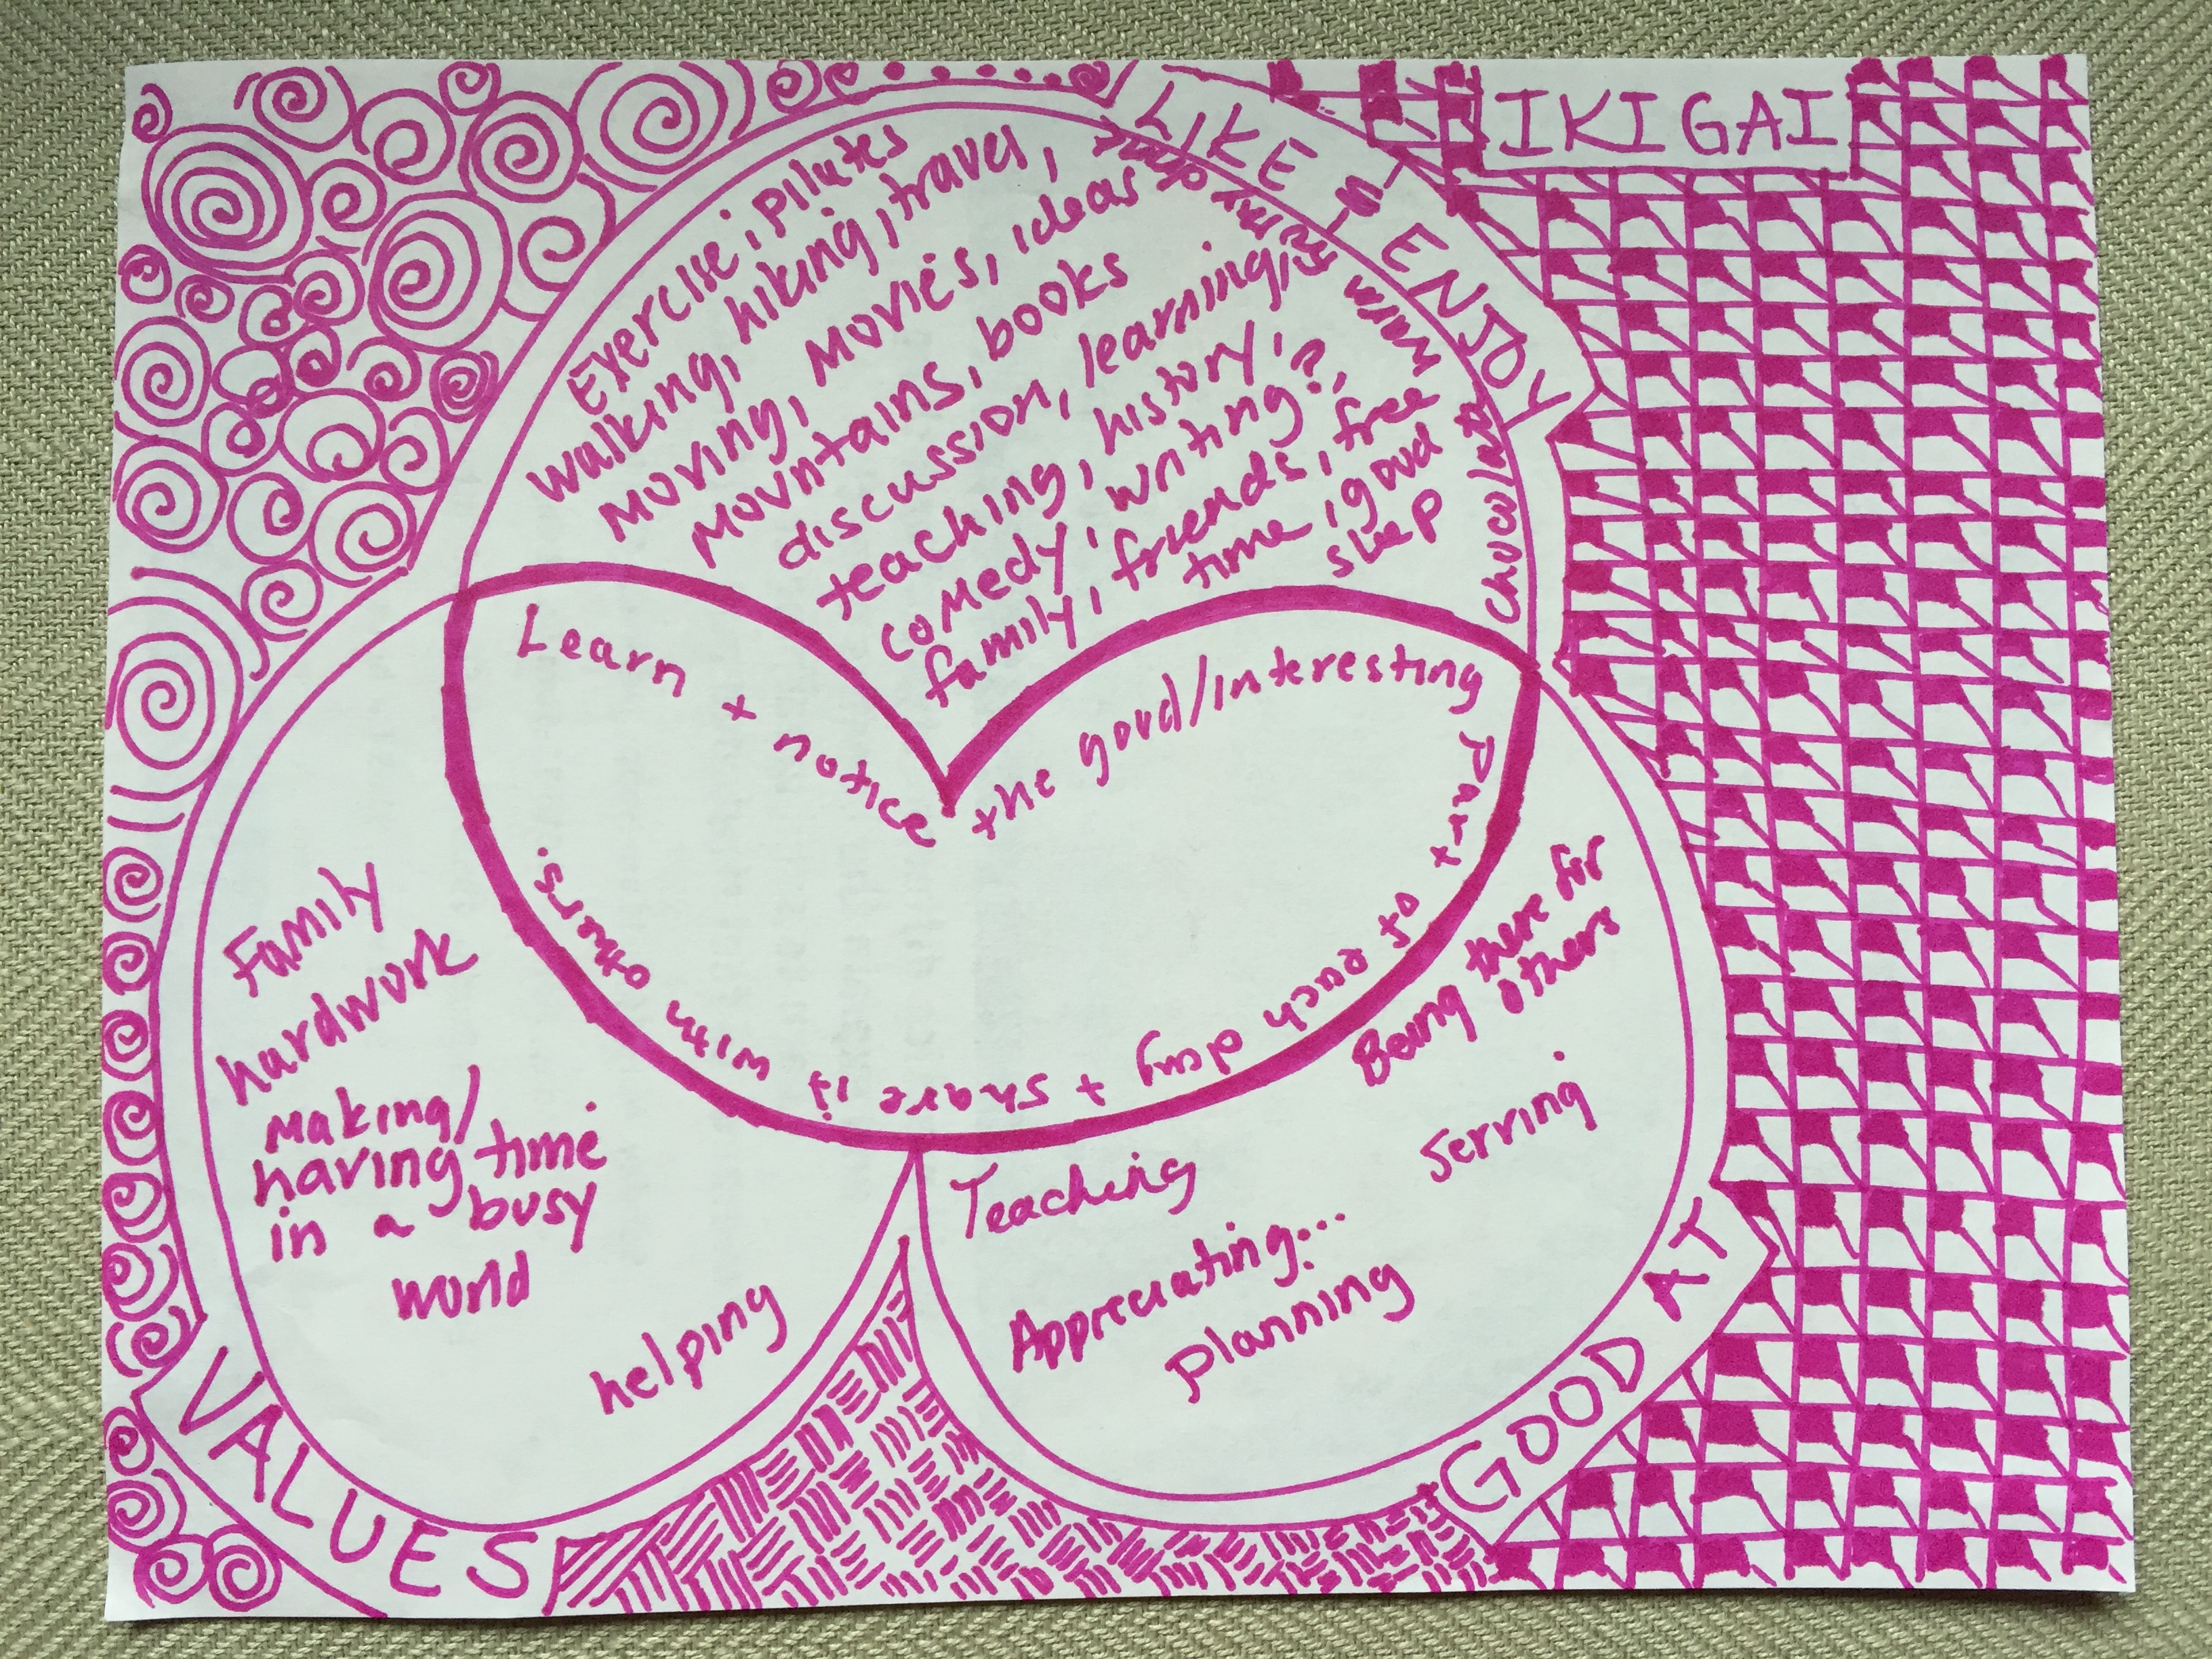 IKIGAI
LIKE & ENJOY
Exercise; Pilates
walking, hiking, travel,
moving, movies, ideas
mountains, books
discussion, learning,
teaching, history,
comedy, writing?,
family, friends, free
time, good
sleep
warm
chocolate
Learn + notice the good/interesting
part of each day + share it with others.
Family
hardwork
Making/
having time
in a busy
world
helping
VALUES
Being there for
others
Serving
Teaching
Appreciating...
planning
GOOD AT